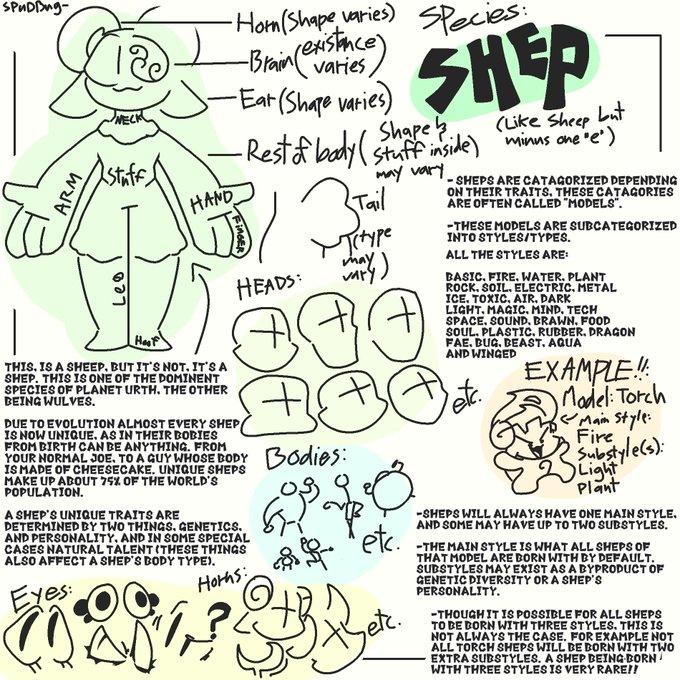 SPuDDug-
Horn (Shape varies)
Brain (existance
varies)
Ear (Shape varies)
NECK
Rest of body ( Shape &
stuff inside)
may vary
Stuff
ARM
HAND
FINGER
LEG
Hoof
Tail
(type
may
vary)
Species:
SHEP
(Like Sheep but
minus one "e")
- SHEPS ARE CATAGORIZED DEPENDING
ON THEIR TRAITS. THESE CATAGORIES
ARE OFTEN CALLED "MODELS".
-THESE MODELS ARE SUBCATEGORIZED
INTO STYLES/TYPES.
ALL THE STYLES ARE:
BASIC, FIRE, WATER, PLANT
ROCK, SOIL, ELECTRIC, METAL
ICE, TOXIC, AIR, DARK
LIGHT, MAGIC, MIND, TECH
SPACE, SOUND, BRAWN, FOOD
SOUL, PLASTIC, RUBBER, DRAGON
FAE, BUG, BEAST, AQUA
AND WINGED
HEADS:
etc.
THIS, IS A SHEEP, BUT IT'S NOT, IT'S A
SHEP. THIS IS ONE OF THE DOMINENT
SPECIES OF PLANET URTH, THE OTHER
BEING WULVES.
DUE TO EVOLUTION ALMOST EVERY SHEP
IS NOW UNIQUE, AS IN THEIR BODIES
FROM BIRTH CAN BE ANYTHING, FROM
YOUR NORMAL JOE, TO A GUY WHOSE BODY
IS MADE OF CHEESECAKE. UNIQUE SHEPS
MAKE UP ABOUT 75% OF THE WORLD'S
POPULATION.
A SHEP'S UNIQUE TRAITS ARE
DETERMINED BY TWO THINGS, GENETICS,
AND PERSONALITY, AND IN SOME SPECIAL
CASES NATURAL TALENT (THESE THINGS
ALSO AFFECT A SHEP'S BODY TYPE).
Bodies:
etc.
EXAMPLE!!:
Model: Torch
Main Style:
Fire
Substyle(s):
Light
Plant
-SHEPS WILL ALWAYS HAVE ONE MAIN STYLE,
AND SOME MAY HAVE UP TO TWO SUBSTYLES.
-THE MAIN STYLE IS WHAT ALL SHEPS OF
THAT MODEL ARE BORN WITH BY DEFAULT.
SUBSTYLES MAY EXIST AS A BYPRODUCT OF
GENETIC DIVERSITY OR A SHEP'S
PERSONALITY.
-THOUGH IT IS POSSIBLE FOR ALL SHEPS
TO BE BORN WITH THREE STYLES, THIS IS
NOT ALWAYS THE CASE. FOR EXAMPLE NOT
ALL TORCH SHEPS WILL BE BORN WITH TWO
EXTRA SUBSTYLES. A SHEP BEING BORN
WITH THREE STYLES IS VERY RARE!!
Eyes:
?
Horns:
etc.